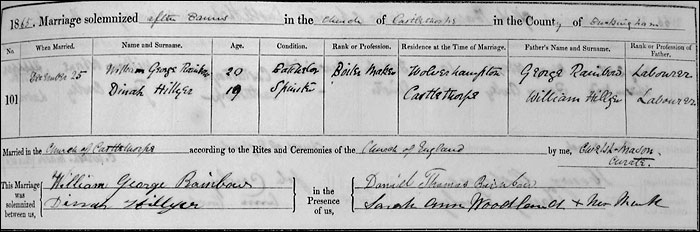 1865. Marriage solemnized after Banns in the Church of Castlethorpe in the County of Buckingham
No. When Married. Name and Surname. Age. Condition. Rank or Profession. Residence at the Time of Marriage. Father's Name and Surname. Rank or Profession of Father.
101 December 25 William George Rainbow 20 Bachelor Boiler Maker Wolverhampton George Rainbow Labourer
Dinah Hillyer 19 Spinster Castlethorpe William Hillyer Labourer
Married in the Church of Castlethorpe according to the Rites and Ceremonies of the Church of England by me, Mason
Curate.
This Marriage was solemnized between us, William George Rainbow in the Presence of us, Daniel Thomas Rainbow
Dinah Hillyer Sarah Ann Woodland x Her Mark